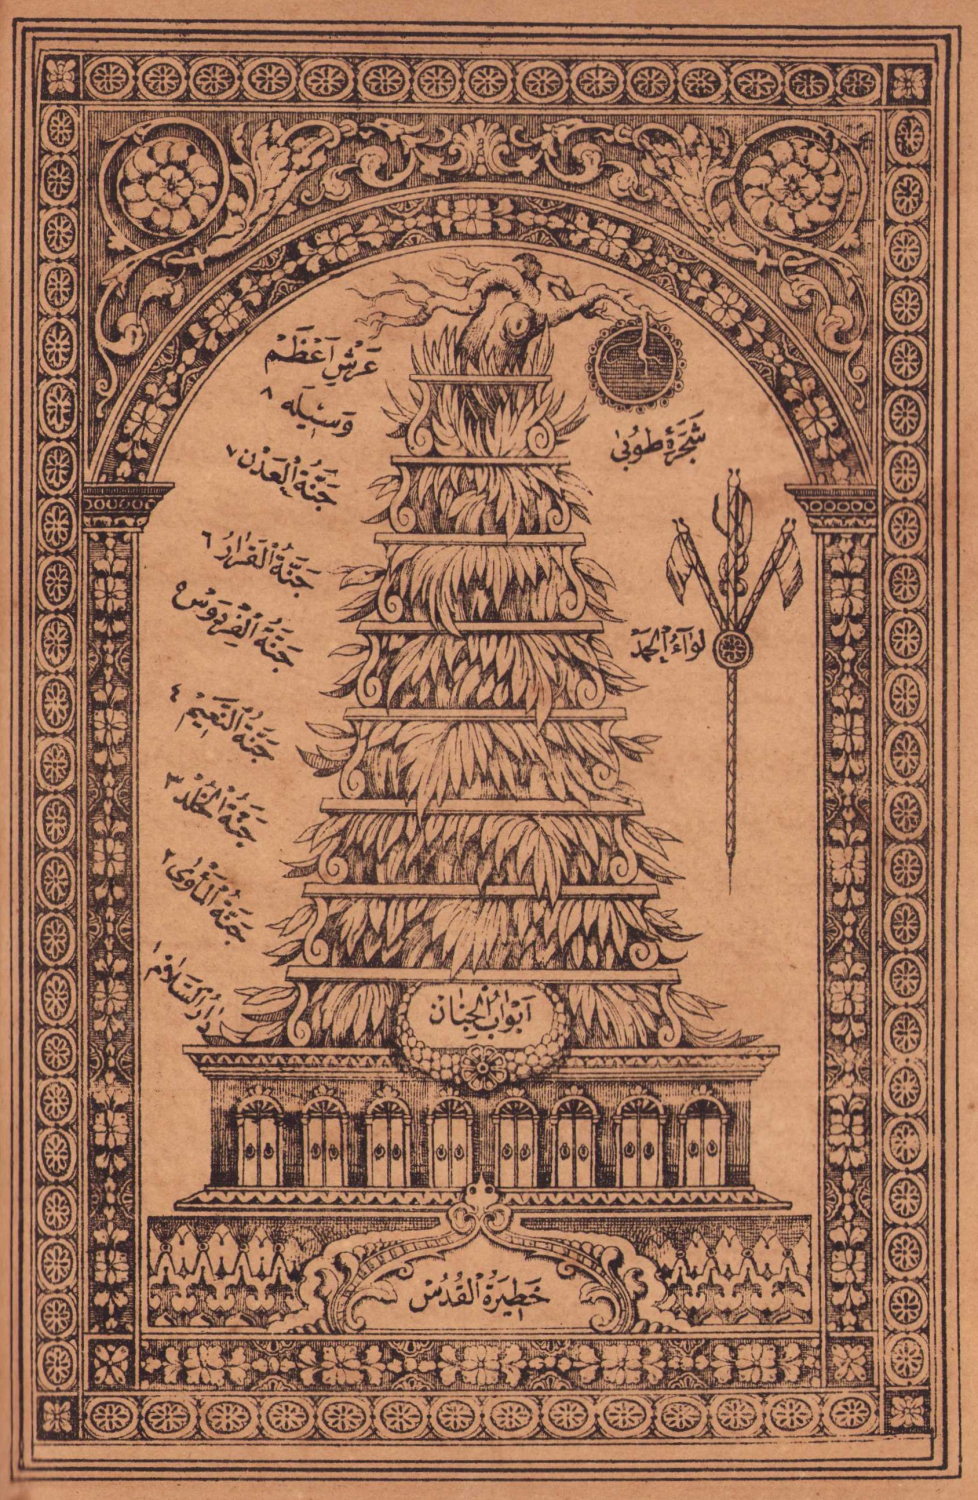 عَرْشِ اَعْظَمْ
وَسِيلَه ٨
جَنَّةُ الْعَدْن ٧
جَنَّةُ الْقَرَار ٦
جَنَّةُ الْفِرْدَوْسْ ٥
جَنَّةُ النَّعِيمْ ٤
جَنَّةُ الْخُلْد ٣
جَنَّةُ الْمَأْوٰى ٢
دَارُ السَّلَامْ ١
شَجَرَۀ طُوبٰى
لِوَآءُ الْحَمْد
اَبْوَابُ الْجِنَانْ
حَظِيرَةُ الْقُدُسْ